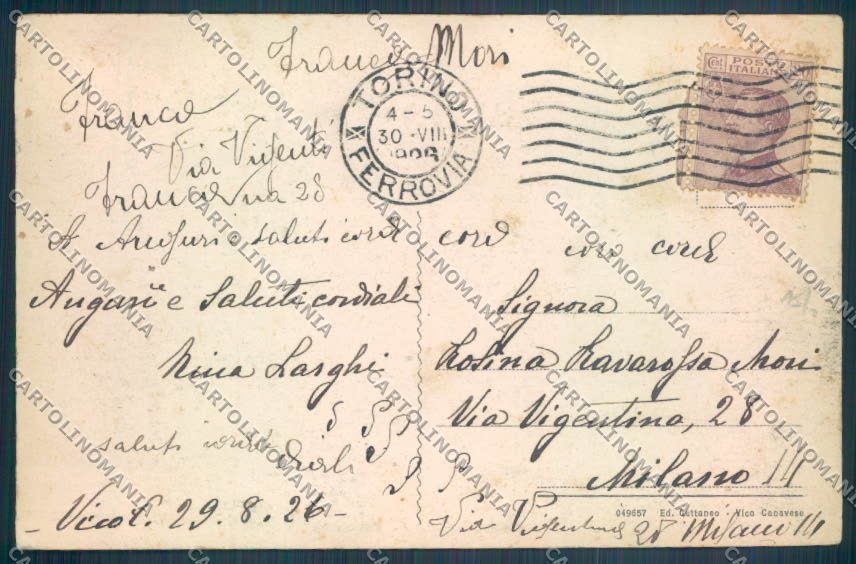 Franca Mori
Franca
Via Vigenti
Franca via 28
Auguri e saluti cord
Augurii e Saluti cordiali
Nina Larghi
saluti cordi
diali
- Vico C. 29.8.26 -
TORINO
4-5
30·VIII
1926
FERROVIA
Cent. POSTE
ITALIANE 50
cord cord
Signora
Rosina Ravarossa Mori
Via Vigentina, 28
Milano
049657 Ed. Cattaneo - Vico Canavese
Via Vigentina 28 Milano
CARTOLINOMANIA